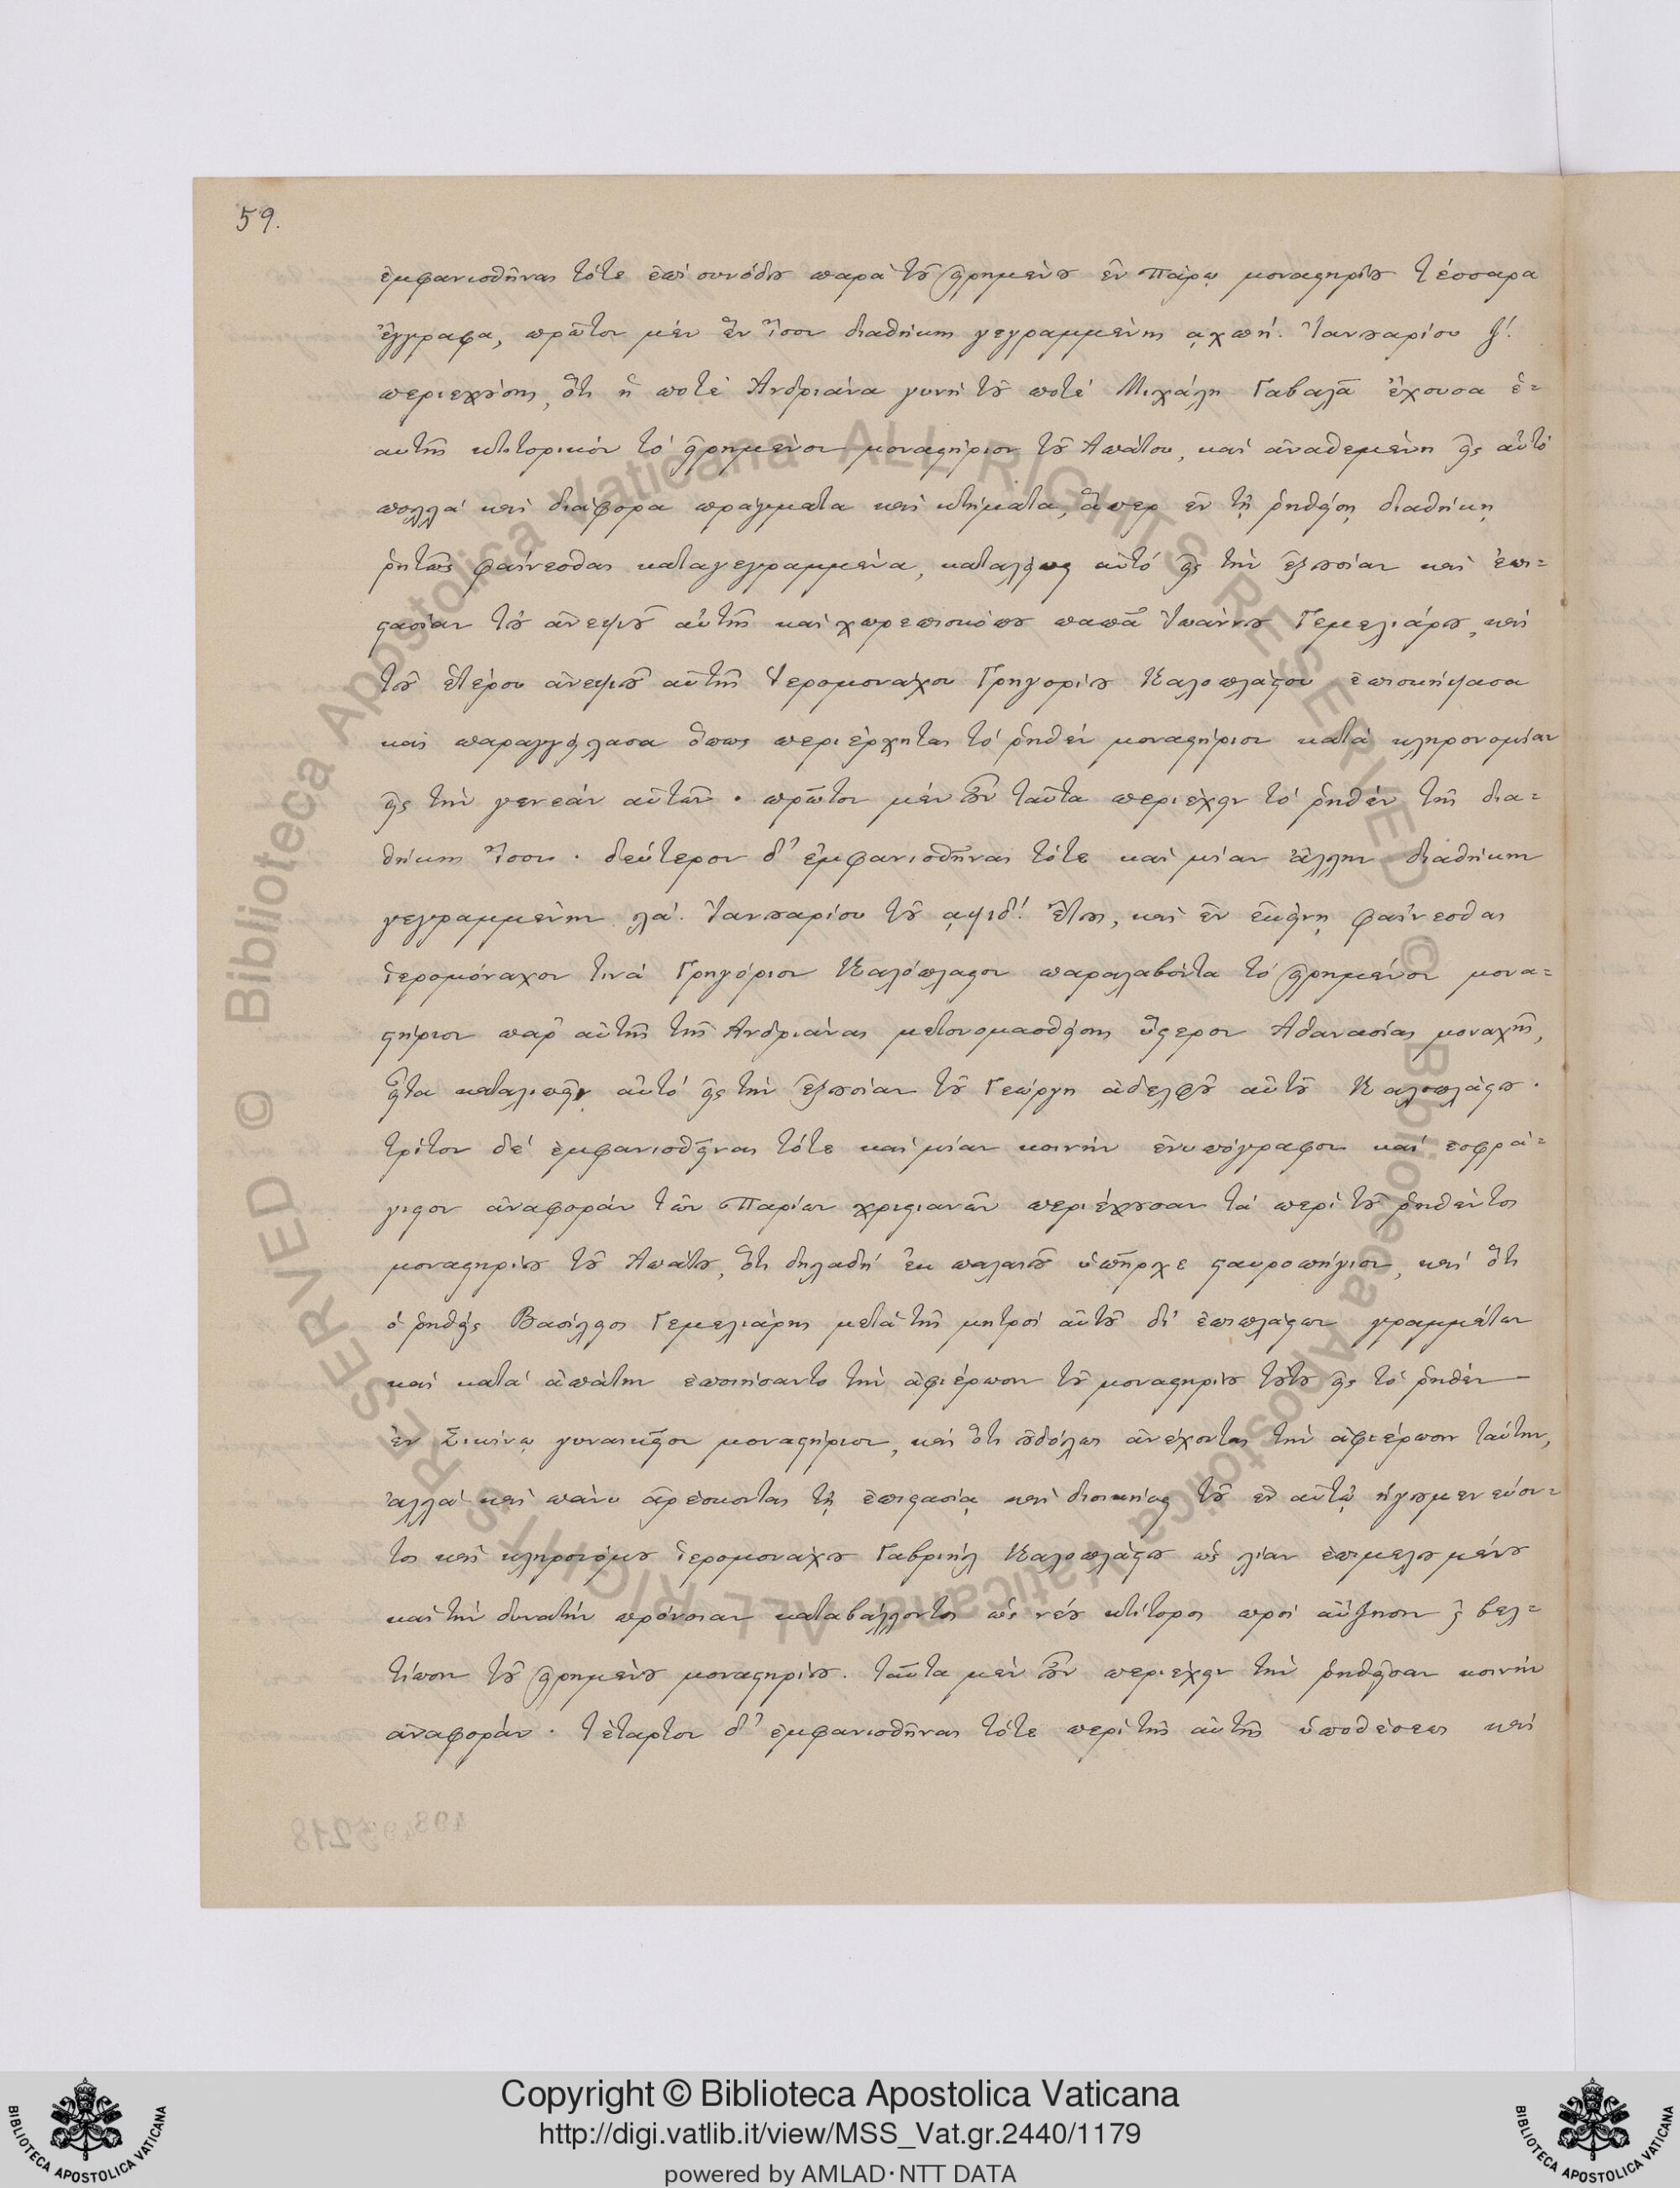 59.
ἐμφανισθῆναι τότε ἐπὶ συνόδου παρὰ τοῦ εἰρημένου ἐν Πάρῳ μοναστηρίου τέσσαρα
ἔγγραφα, πρῶτον μὲν ἓν ἴσον διαθήκης γεγραμμένης ͵αχπή. Ἰανουαρίου ζ΄.
περιεχούσης, ὅτι ἡ ποτὲ Ἀνδριάνα γυνὴ τοῦ ποτὲ Μιχάλη Γαβαλᾶ ἔχουσα ἑ-
αυτῆς κτιτορικὸν τὸ εἰρημένον μοναστήριον τοῦ Ἀπάτου, καὶ ἀναθεμένη εἰς αὐτὸ
πολλὰ καὶ διάφορα πράγματα καὶ κτήματα, ἅπερ ἐν τῇ ῥηθείσῃ διαθήκῃ
ῥητῶς φαίνεσθαι καταγεγραμμένα, καταλείψαι αὐτὸ εἰς τὴν ἐξουσίαν καὶ ἐπι-
στασίαν τοῦ ἀνεψιοῦ αὐτῆς καὶ χωρεπισκόπου παπᾶ Ἰωάννου Γεμελιάρου, καὶ
τοῦ ἑτέρου ἀνεψιοῦ αὐτῆς Ἱερομονάχου Γρηγορίου Καλοπλάστου ἐπισκήψασα
καὶ παραγγείλασα ὅπως περιέρχηται τὸ ῥηθὲν μοναστήριον κατὰ κληρονομίαν
εἰς τὴν γενεὰν αὐτῶν · πρῶτον μὲν οὖν ταῦτα περιέχειν τὸ ῥηθὲν τῆς δια-
θήκης ἴσον · δεύτερον δ' ἐμφανισθῆναι τότε καὶ μίαν ἄλλην διαθήκην
γεγραμμένην λα΄. Ἰανουαρίου τοῦ ͵αψιδ΄. ἔτους, καὶ ἐν ἐκείνῃ φαίνεσθαι
ἱερομόναχον τινὰ Γρηγόριον Καλόπλαστον παραλαβόντα τὸ εἰρημένον μονα-
στήριον παρ' αὐτῆς τῆς Ἀνδριάνας μετονομασθείσης ὕστερον Ἀθανασίας μοναχῆς,
εἶτα καταλιπεῖν αὐτὸ εἰς τὴν ἐξουσίαν τοῦ Γεώργη ἀδελφοῦ αὐτοῦ Καλοπλάστου ·
τρίτον δὲ ἐμφανισθῆναι τότε καὶ μίαν κοινὴν ἐνυπόγραφον καὶ ἐσφρά-
γιστον ἀναφορὰν τῶν Παρίων χριστιανῶν περιέχουσαν τὰ περὶ τοῦ ῥηθέντος
μοναστηρίου τοῦ Ἀπάτου, ὅτι δηλαδὴ ἐκ παλαιοῦ ὑπῆρχε σταυροπήγιον, καὶ ὅτι
ὁ ῥηθεὶς Βασίλειος Γεμελιάρης μετὰ τῆς μητρὸς αὐτοῦ δι' ἐπιπλάστων γραμμάτων
καὶ κατὰ ἀπάτην ἐποιήσαντο τὴν ἀφιέρωσιν τοῦ μοναστηρίου τούτου εἰς τὸ ῥηθὲν
ἐν Σικίνῳ γυναικεῖον μοναστήριον, καὶ ὅτι οὐδόλως ἀνέχονται τὴν ἀφιέρωσιν ταύτην,
ἀλλὰ καὶ πάνυ ἀρέσκονται τῇ ἐπιστασίᾳ καὶ διοικήσει τοῦ ἐν αὐτῷ ἡγουμενεύον-
τος καὶ κληρονόμου ἱερομονάχου Γαβριὴλ Καλοπλάστου ὡς λίαν ἐπιμελουμένου
καὶ τὴν δυνατὴν πρόνοιαν καταβάλλοντος ὡς νέου κτίτορος πρὸς αὔξησιν ϗ βελ-
τίωσιν τοῦ εἰρημένου μοναστηρίου. ταῦτα μὲν οὖν περιέχειν τὴν ῥηθεῖσαν κοινὴν
ἀναφοράν · τέταρτον δ' ἐμφανισθῆναι τότε περὶ τῆς αὐτῆς ὑποθέσεως καὶ
Biblioteca Apostolica Vaticana ALL RIGHTS RESERVED ©
Biblioteca Apostolica Vaticana ALL RIGHTS RESERVED ©
Copyright © Biblioteca Apostolica Vaticana
http://digi.vatlib.it/view/MSS_Vat.gr.2440/1179
powered by AMLAD·NTT DATA
BIBLIOTECA APOSTOLICA VATICANA
BIBLIOTECA APOSTOLICA VATICANA